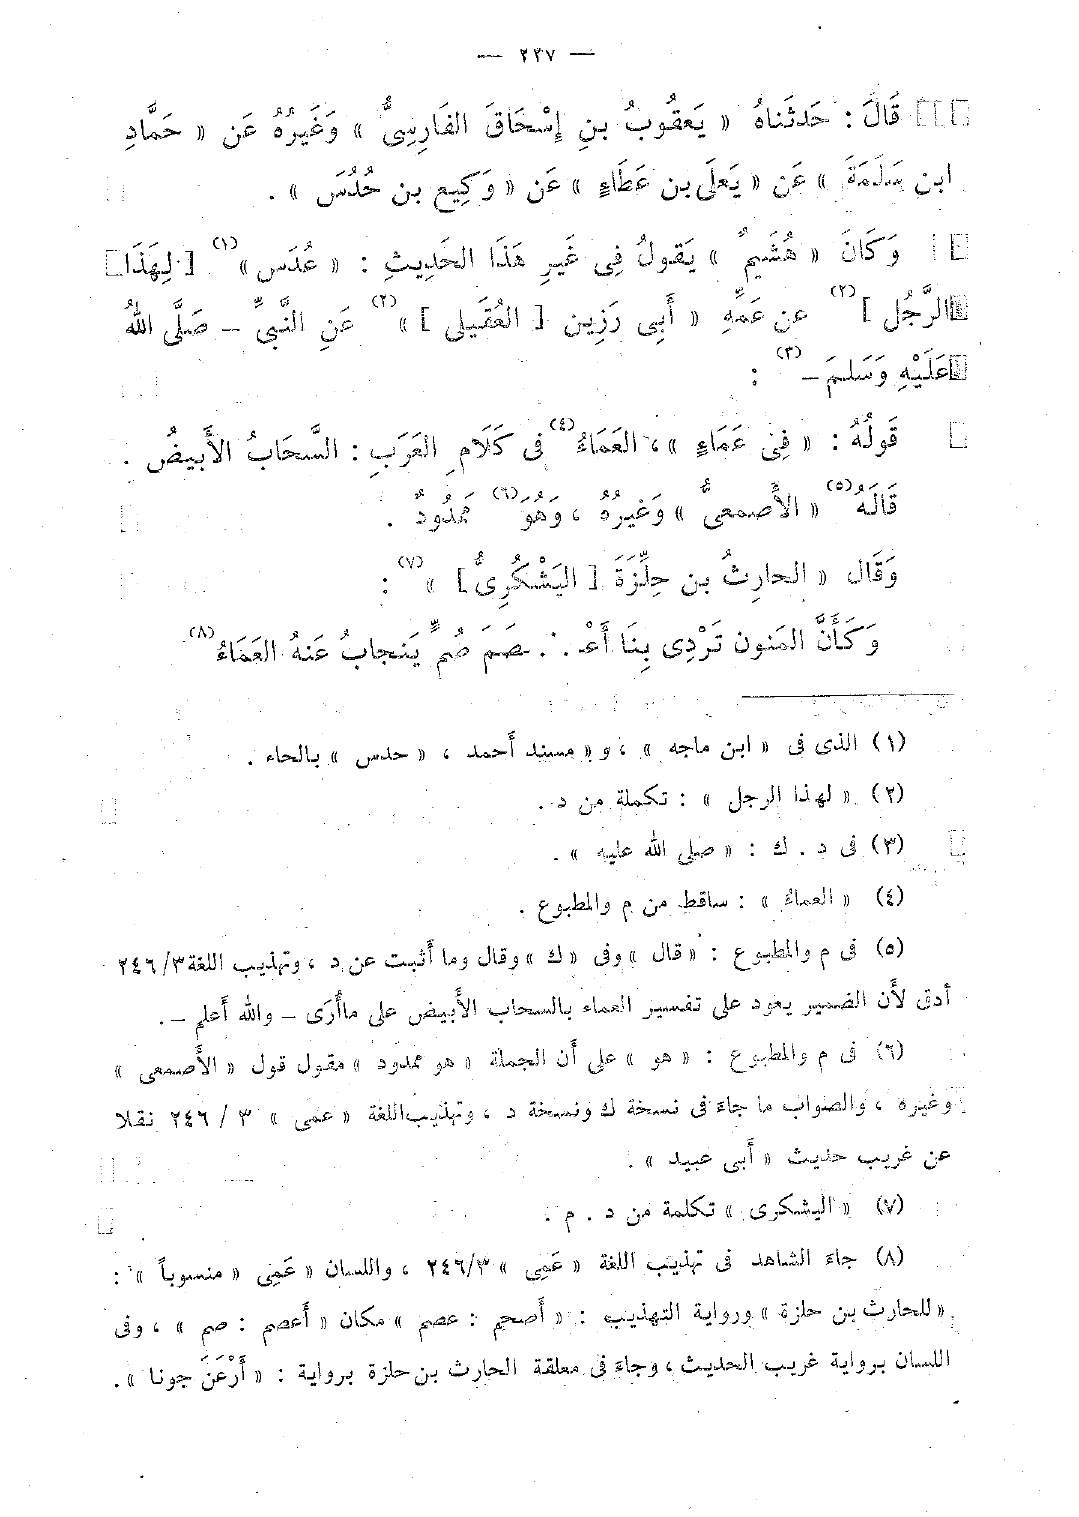 — ٢٣٧ —
قَالَ : حَدثَناهُ « يَعقُوبُ بنِ إسْحَاقَ الفَارِسِىُّ » وَغَيرُهُ عَن « حَمَّادِ
ابن سَلَمَةَ » عَن « يَعلَى بن عَطَاءٍ » عَن « وَكِيع بن حُدُسَ » .
وَكَانَ « هُشَيمٌ » يَقولُ فِى غَيرِ هَذَا الحَدِيثِ : « عُدَس »(١) [ لِهَذَا
الرَّجُل ](٢) عن عَمِّهِ « أَبِى رَزِين [ العُقَيلى ] »(٢) عَنِ النَّبىِّ – صَلَّى اللهُ
عَلَيْهِ وَسَلمَ –(٣) :
قَولُهُ : « فِى عَمَاءٍ » ، العَمَاءُ(٤) فى كَلَامِ العَرَبِ : السَّحَابُ الأَبيضُ .
قَالَهُ(٥) « الأَصمعىُّ » وَغَيرُهُ ، وَهُوَ(٦) مَمدُودٌ .
وَقَال « الحارِثُ بن حِلِّزَةَ [ اليَشْكُرِىُّ ] »(٧) :
وَكَأَنَّ المَنون تَرْدِى بِنَا أَعْـ ∴ ـصَمَ صُمٍّ يَنجابُ عَنهُ العَمَاءُ(٨)
(١) الذى فى « ابن ماجه » ، و « مسند أحمد ، « حدس » بالحاء .
(٢) « لهذا الرجل » : تكملة من د .
(٣) فى د . ك : « صلى الله عليه » .
(٤) « العماءُ » : ساقط من م والمطبوع .
(٥) فى م والمطبوع : « قال » وفى « ك » وقال وما أثبت عن د ، وتهذيب اللغة ٢٤٦/٣
أدق لأن الضمير يعود على تفسير العماء بالسحاب الأبيض على ماأُرَى – والله أعلم – .
(٦) فى م والمطبوع : « هو » على أن الجملة « هو ممدود » مقول قول « الأصمعى »
وغيره ، والصواب ما جاءَ فى نسخة ك ونسخة د ، وتهذيب اللغة « عمى » ٣ / ٢٤٦ نقلا
عن غريب حديث « أبى عبيد » .
(٧) « اليشكرى » تكلمة من د . م .
(٨) جاءَ الشاهد فى تهذيب اللغة « عَمِى » ٢٤٦/٣ ، واللسان « عَمِى « منسوباً » :
« للحارث بن حلزة » ورواية التهذيب : « أصحم : عصم » مكان « أعصم : صم » ، وفى
اللسان برواية غريب الحديث ، وجاءَ فى معلقة الحارث بن حلزة برواية : « أَرْعَنَ جونا » .